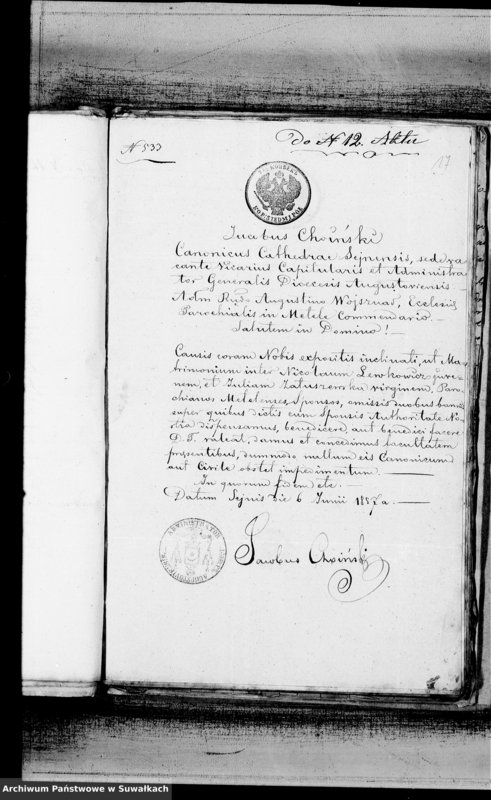 do N 12. Aktu
N 533
17
KOP. SIEDM I PÓŁ
Jacobus Choiński
Canonicus Cathedrae Sejnensis, sede va
cante Vicarius Capitularis et Administra
tor Generalis Dioecesis Augustoviensis
Adm Rndo Augustino Wojsznad, Ecclesiae
Parochialis in Metele Commendario.
Salutem in Domino!
Causis coram Nobis expositis inclinati, ut Ma
trimonium inter Nicolaum Lewkowicz juve
nem, et Juliam Jatuszewska virginem, Paro
chianos Metelenses, Sponsos, omissis duobus bannis
super quibus dictis cum Sponsis Authoritate No
stra dispensamus, benedicere, aut benedici facere
D. T. valeat, damus et concedimus facultatem
praesentibus, dummodo nullum eis Canonicum
aut Civile obstet impedimentum.
In quorum fidem etc.
Datum Sejnis die 6 Junii 1857 a.
ADMINISTRATOR
Jacobus Choiński
Archiwum Państwowe w Suwałkach